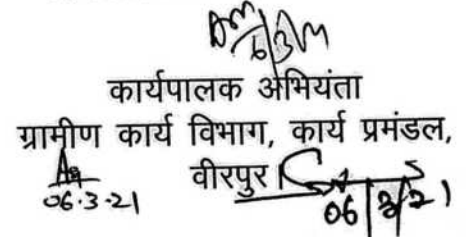 कार्यपालक अभियंता
ग्रामीण कार्य विभाग, कार्य प्रमंडल,
वीरपुर
06.3.21
06/3/21